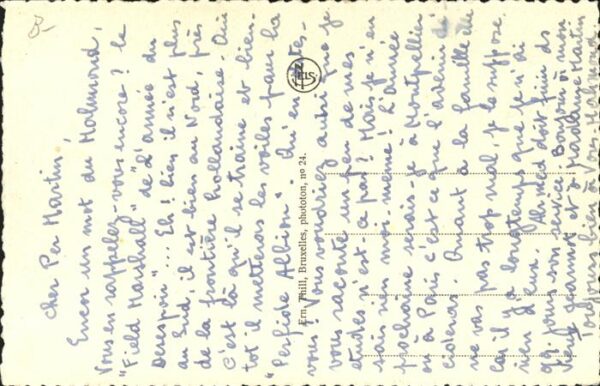 B-
Cher Per Martin,
Encor un mot du
Vous en rappelez-vous encore? le
"Field Marshall" "de l'armée du
Desespoir"... Eh! bien il n'est plus
au Sud, il est bien au Nord, près
de la frontière hollandaise. Oui
c'est là qu'il se traine et bien-
tot il metteras les voiles pour la
"Perfide Albion". Qu'en dites-
vous! Vous voudriez aussi que je
vous raconte un peu de mes
études n'est-ce pas? Mais je n'en
sais rien moi-même! L'année
prochaine serais-je à Montpellier
ou à Paris c'est ce que l'avenir
Quant à la famille elle
ne vas pas trop mal, je le suppose.
car il y a longtemps que je n'ai
rien d'eux. Ahmed doit finir ds
qq jours son service. Bonjour à
Jeannot et à Madame Martin
Toujours bien à vous.
Ern. Thill, Bruxelles, phototon, nº 24.